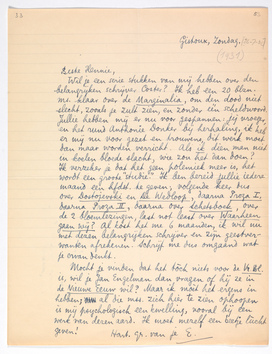 36
Gistoux, Zondag,
Beste Hennie,
Wil je een serie stukken van mij hebben over den
belangrijken schrijver Coster? Ik heb een 20 blz.
me klaar over de Marginalia, om den dood niet
slecht, zooals je zult zien, en zonder één scheldwoord.
Jullie hebben mij er nu voor gespannen, jij vroeg
en het rund Anthonie Donker bij herhaling; ik heb
er mij nu voor gezet en vrouwen dat werk moet
dan maar verricht worden ook. Als ik dien man niet
in koelen bloede slacht, wie zou dat van doen?
Ik verzeker je dat het geen polemiek meer is, dat
wordt een groote studie! Ik ben bereid jullie iedere
maand een hfdst. te geven; volgende keer dus
over Dostojevski en de Webbooy, daarna Proza I,
daarna Proza II, daarna over Schetsboek, over
de 2 Bloemlezingen, last not least over Waarheen
gaan wij? Al kost het me 6 maanden, ik wil nu
met deze belangrijken schrijver en zijn geestver-
wanten afrekenen. Schrijf me dus omgaand wat
je ervan denkt.
Mocht je vinden dat het tòch niets voor de Vr. Bl.
is, wil Jan Engelman dan vragen of hij het in
de Nieuwe Eeuw wil? Maar ik moet het ergens in
hebben, al die mss. zich hier te zien ophoopen
is mij psychologisch een kwelling, vooral bij een
werk van dezen aard. Ik moet mezelf een beetje lucht
geven!
Hart. gr. van je E.